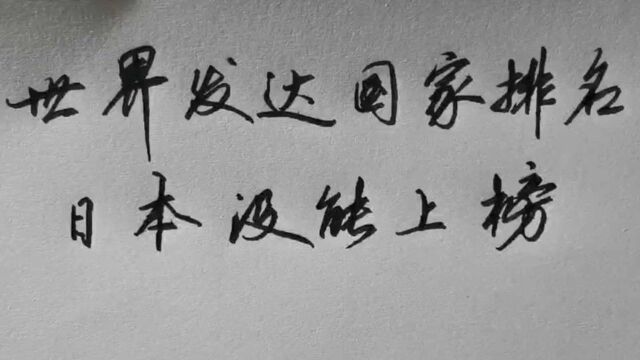 世界发达国家排名
日本没能上榜